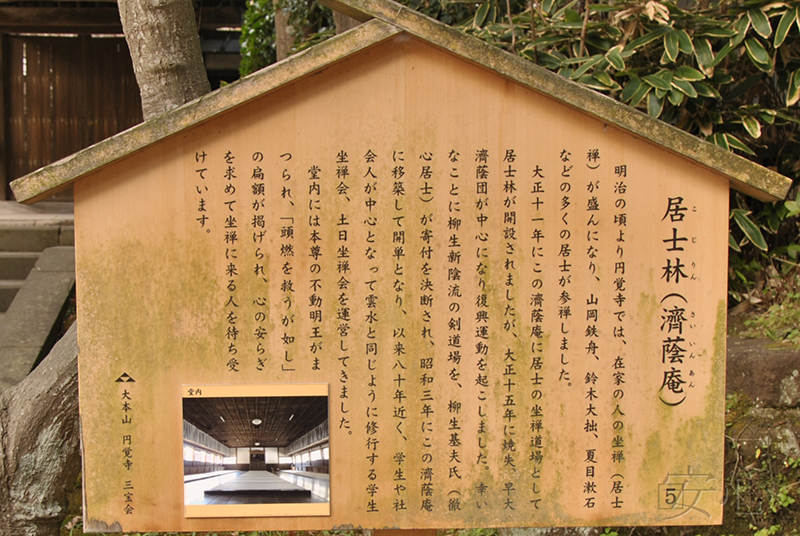 居士林(濟蔭庵)
こじりん
さいいんあん
明治の頃より円覚寺では、在家の人の坐禅(居士
禅)が盛んになり、山岡鉄舟、鈴木大拙、夏目漱石
などの多くの居士が参禅しました。
大正十一年にこの濟蔭庵に居士の坐禅道場として
居士林が開設されましたが、大正十五年に焼失、早大
濟蔭団が中心になり復興運動を起こしました。幸い
なことに柳生新陰流の剣道場を、柳生基夫氏(徹
心居士)が寄付を決断され、昭和三年にこの濟蔭庵
に移築して開単となり、以来八十年近く、学生や社
会人が中心となって雲水と同じように修行する学生
坐禅会、土日坐禅会を運営してきました。
堂内には本尊の不動明王がま
つられ、「頭燃を救うが如し」
の扁額が掲げられ、心の安らぎ
を求めて坐禅に来る人を待ち受
けています。
堂内
大本山 円覚寺 三宝会
5